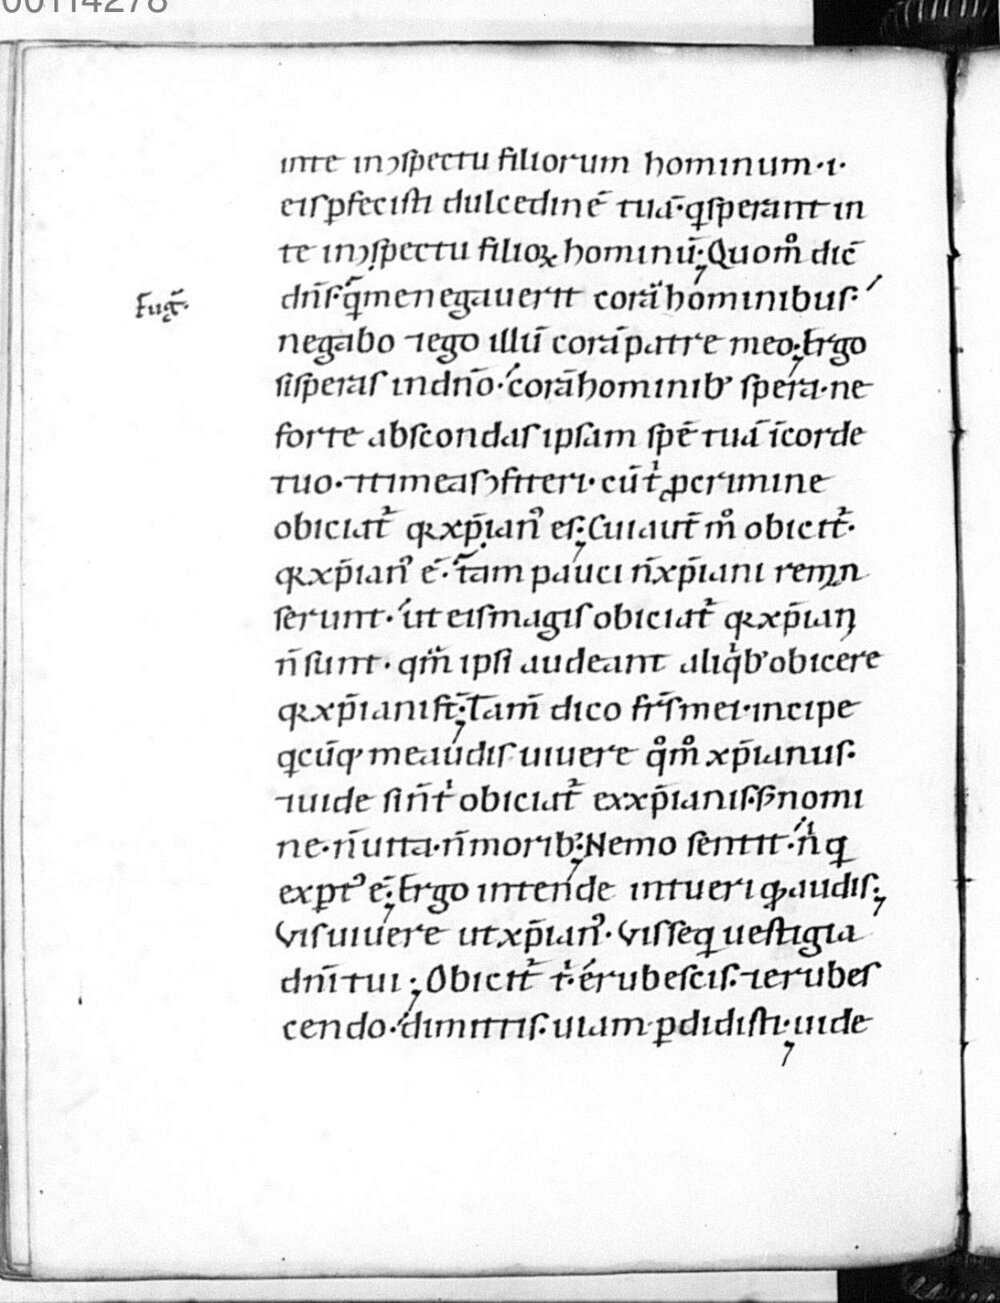 00114278
inte inↄſpectu filiorum hominum·i·
eiſ ꝑfeciſti dulcedinē tuā·q̇ſperant in
te inↄſpectu filioꝝ hominū; Quom̊ dic̄
Euḡ.
dn̄ſ·q̄ me negauerit corā hominibuſ·
negabo ⁊ ego illū corā patre meo; Ergo
ſi ſperaſ in dn̄o· corā hominibꝰ ſpera· ne
forte abſcondaſ ipſam ſpē tuā ī corde
tuo· ⁊ timeaſ ↄfiteri· cū tͥ ꝓ crimine
obiciat᷑ qꝛ xp̄ianꝰ eſ; Cui aut̄ m̊ obicit᷑·
qꝛ xp̄ianꝰ ē· Tam pauci n̄ xp̄iani remn̄
ſerunt· ut eiſ magiſ obiciat᷑ qꝛ xp̄iani
n̄ ſunt· qm̄ ipſi audeant aliqͥbꝰ obicere
qꝛ xp̄iani ſt̄; Tam̄ dico fr̄ſ mei· incipe
qͥcūqꝫ me audiſ uiuere q̊m̊ xp̄ianuſ·
⁊ uide ſi n̄ tͥ obiciat᷑ ex xp̄ianiſ· ẜ nomi
ne· n̄ uita· n̄ moribꝰ; Nemo ſentit· nͥ q
exptꝰ ē; Ergo intende intueri qͩ audiſ;
Viſ uiuere ut xp̄ianꝰ· Viſ ſeq ueſtigia
dn̄i tui; Obicit᷑ tͥ· erubeſciſ· ⁊ erubeſ
cendo· dimittiſ· uiam ꝑdidiſti; uide